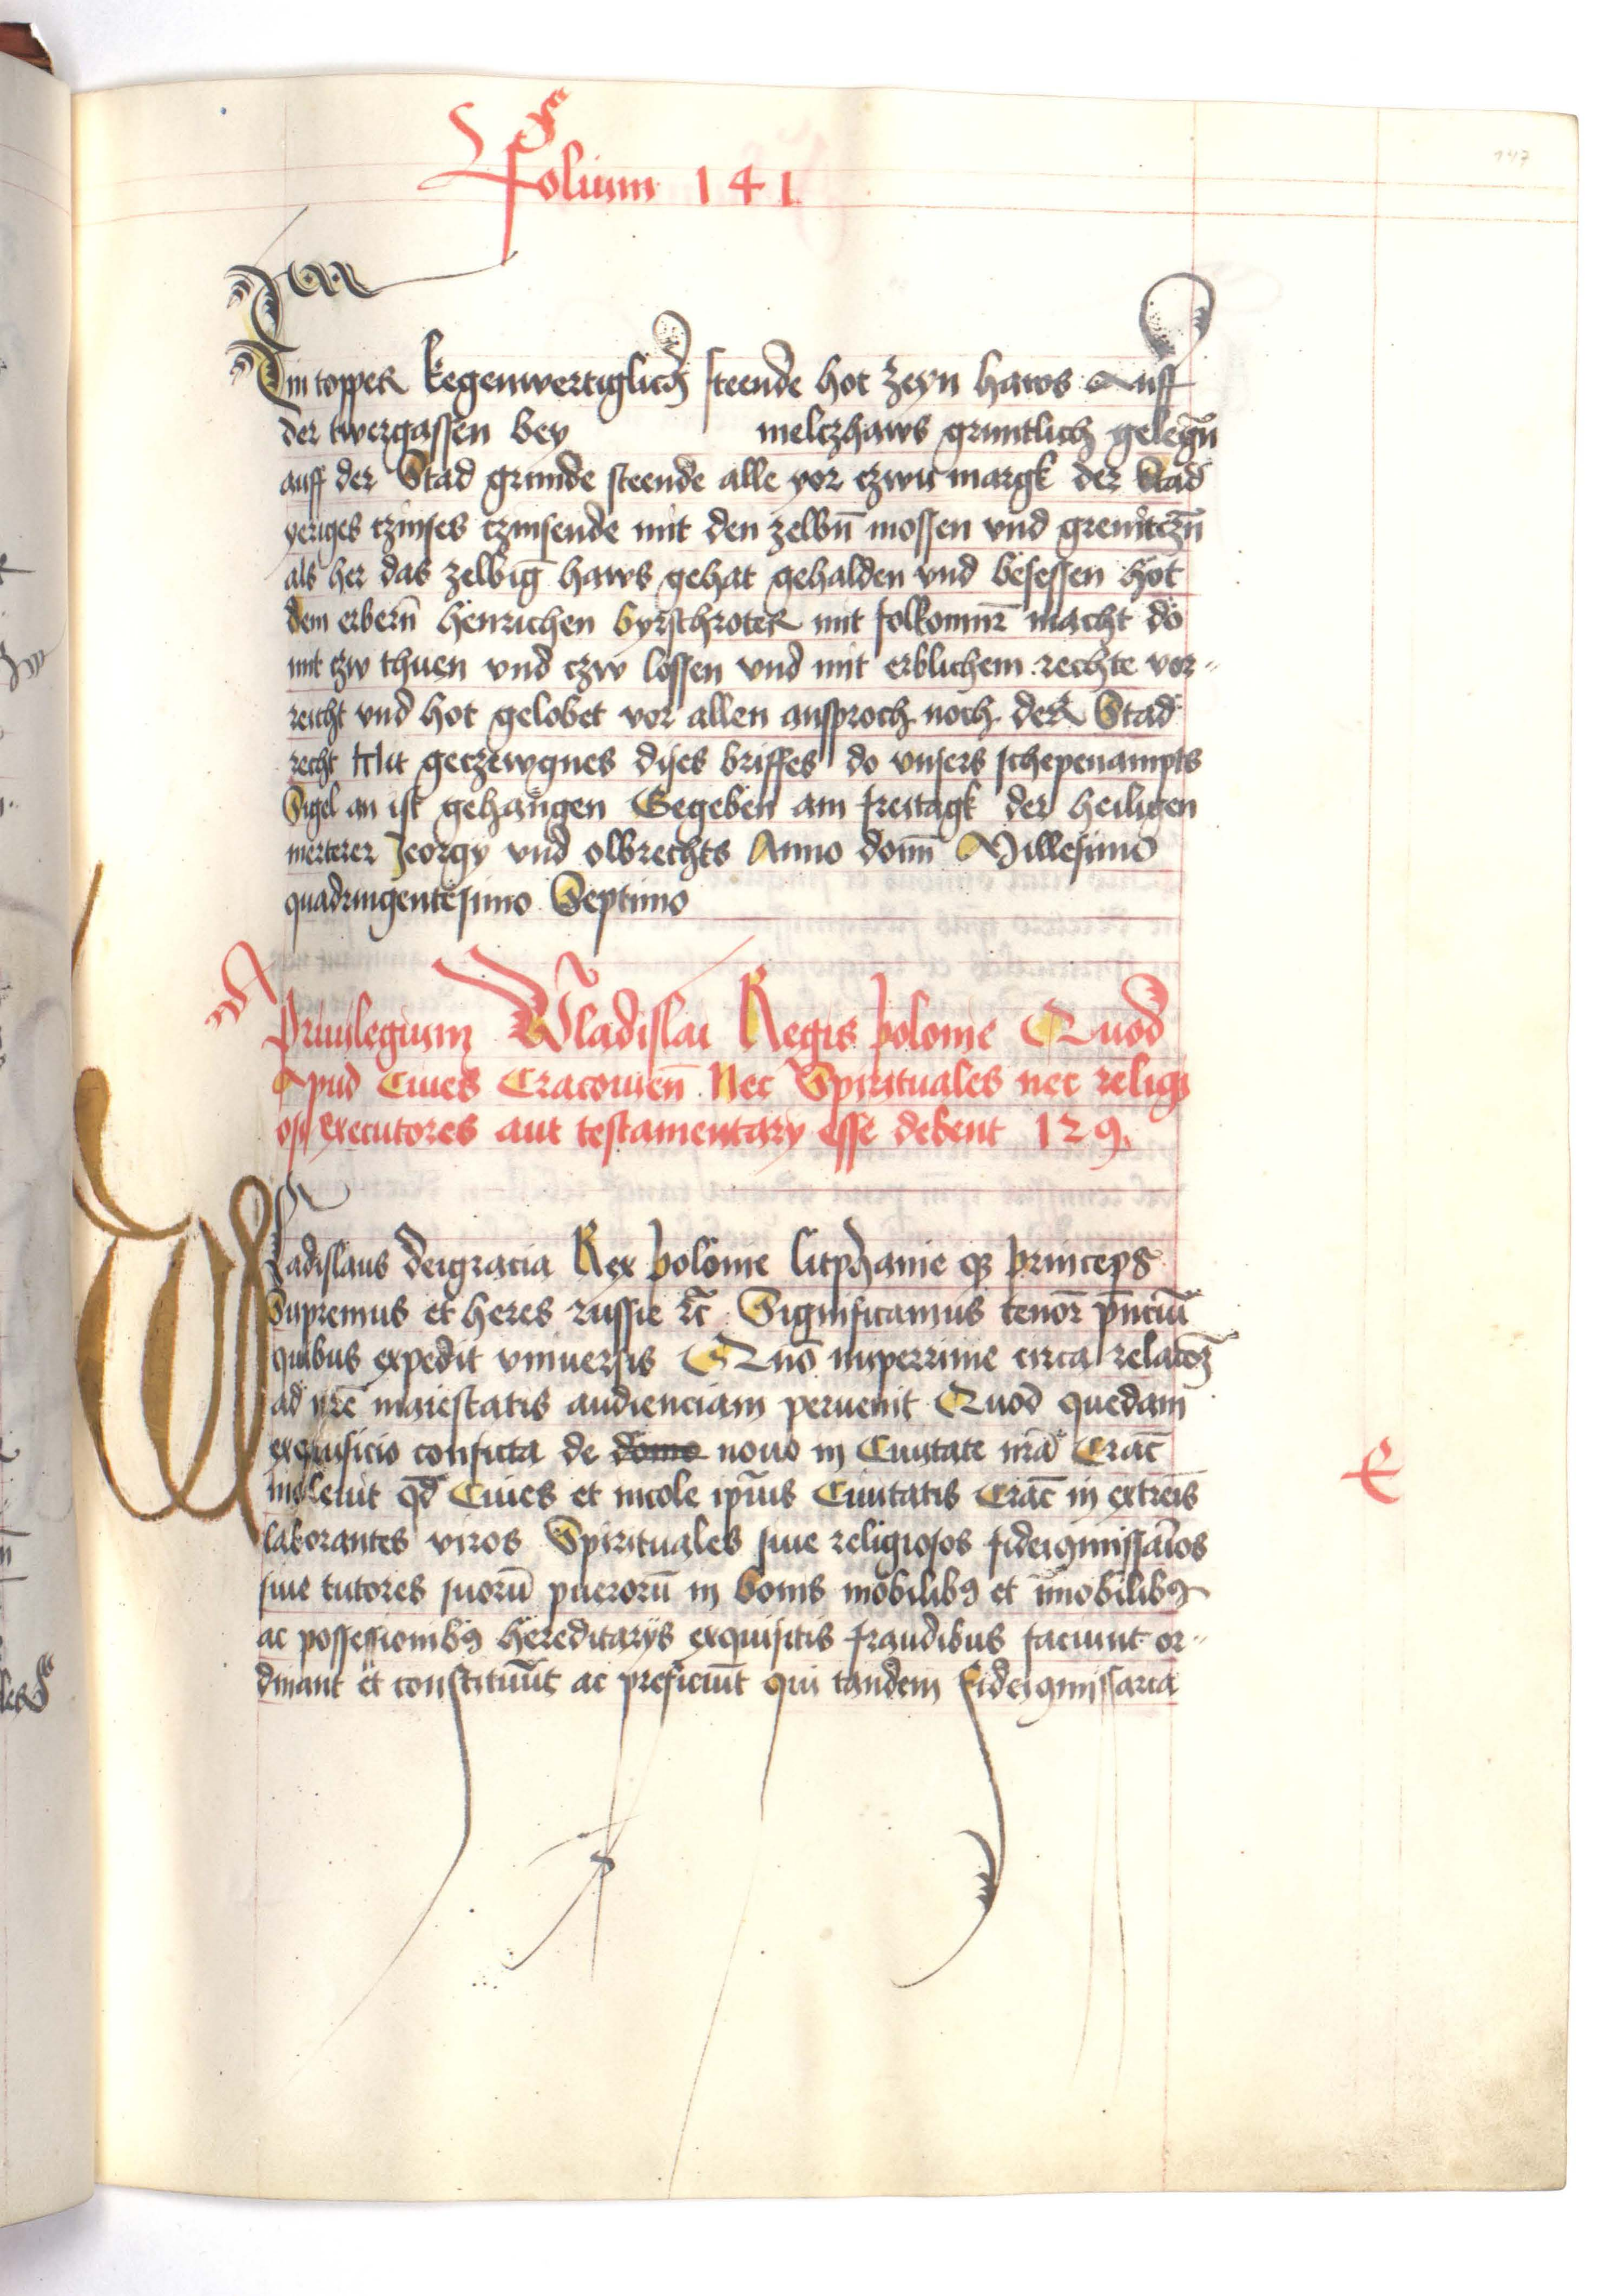 Folium 141
Ein topper kegenwertiglich steende hot zeyn haws Auff
der twergassen bey melczhaws gruntlich gelegn̄
auff der Stad grunde steende alle yor czwu margk der Stad
yeriges czinses czinsende mit den zelbn̄ mossen vnd grenitczn̄
als her das zelbig haws gehat gehalden vnd besessen hot
dem erbern̄ henrichen byrschroter mit folkomnr̄ macht do
mit czw thuen vnd czw lossen vnd mit erblichem rechte vor-
reicht vnd hot gelobet vor allen ansproch noch der Stad
recht Mit geczewgnes dises briffes do vnsers schepenampts
Sigel an ist gehangen Gegeben am freitagk der heiligen
merterer Jeorgy vnd olbrechts Anno domī Millesimo
quadringentesimo Septimo
Priuilegium Wladislai Regis polonie Quod
Apud Ciues Cracouien̄ Nec Spirituales nec religi
osi executores aut testamentary esse debent 129
Wladislaus deigracia Rex polonie litphanie qз princeps
Supremus et heres russie ⁊c̄ Significamus tenor̄ p̄nciū
quibus expedit vniuersis Quo nuperrime circa relacōz
ad nr̄e maiestatis audienciam peruenit Quod quedam
exquisicio conficta de domo nouo in Ciuitate nr̄a Crac̄
inoleuit qd̄ Ciues et incole ip̄ius Ciuitatis Crac̄ in extreīs
laborantes viros Spirituales siue religiosos fideiꝯmissar̄ios
siue tutores suorū puerorū in bonis mobilibꝰ et īmobilibꝰ
ac possessionibꝰ hereditarijs exquisitis fraudibus faciunt or-
dinant et constituūt ac preficiūt qui tandem fideiꝯmissaria